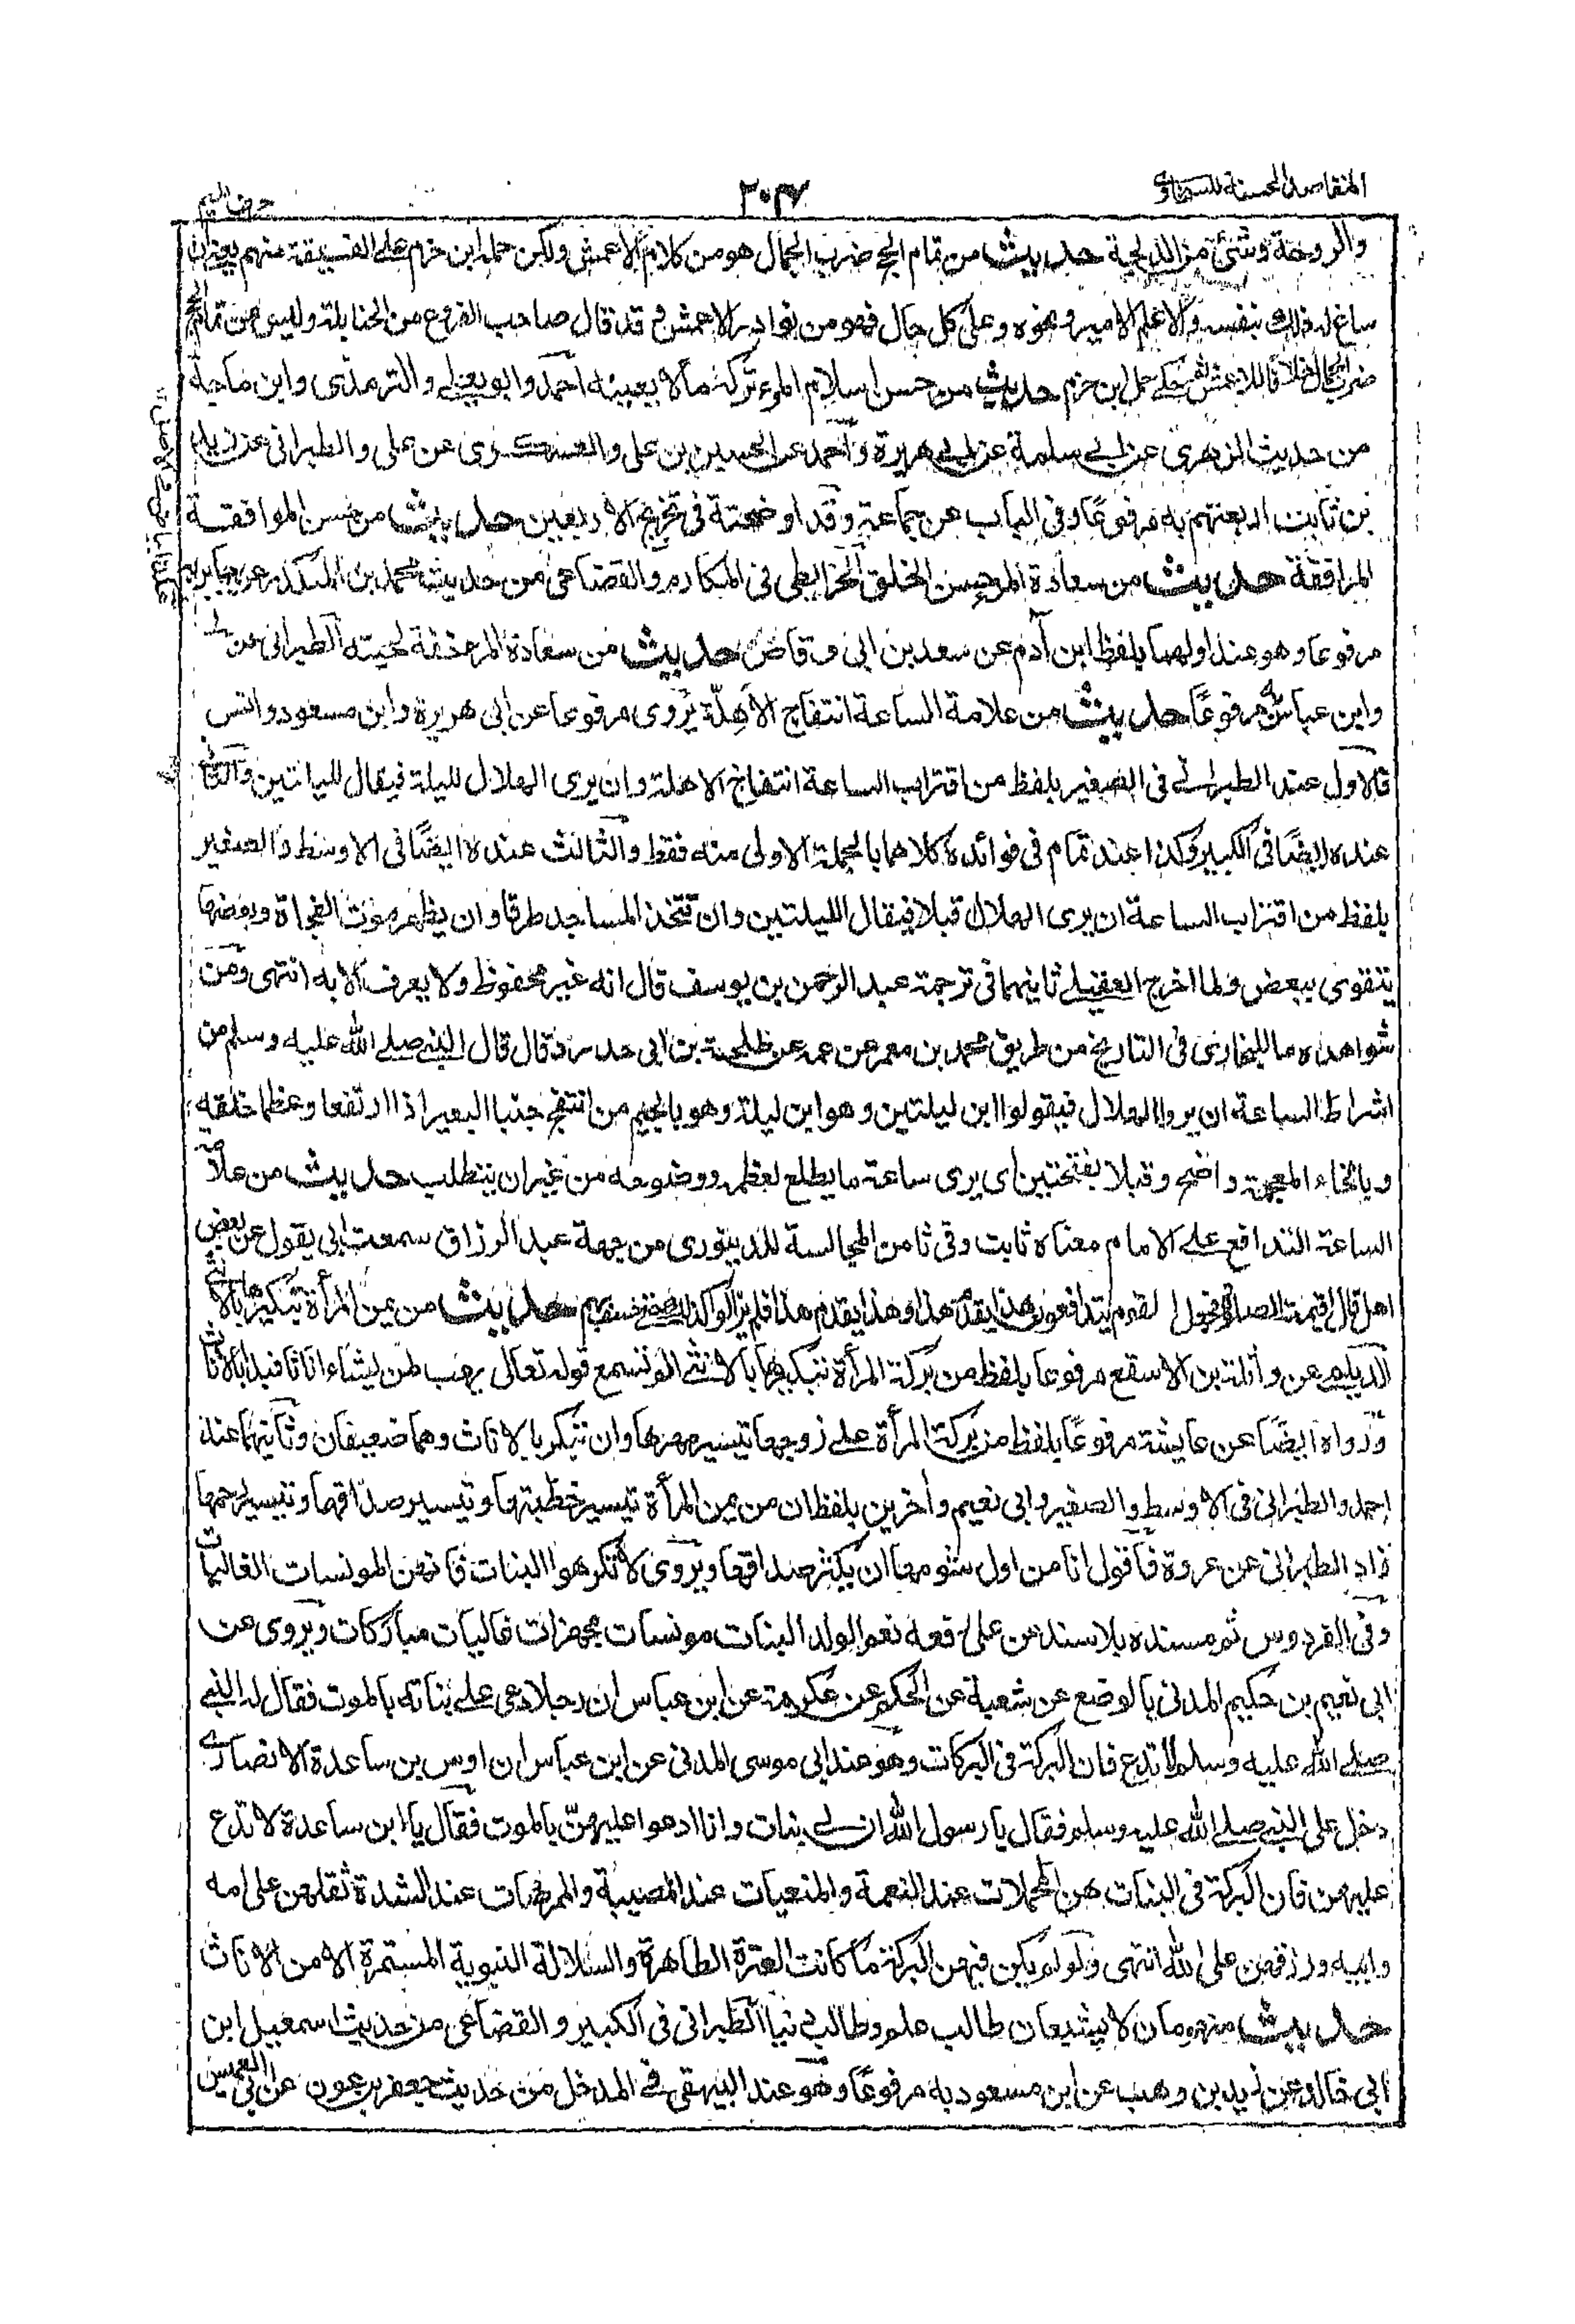 المقاصد الحسنة للسخاوي
٢٠٣٧
حرف الميم
والروحة وشئ من الدلجة حديث من تمام الحج ضرب الجمال هو من كلام الاعمش ولكن حمله ابن حزم على الفسقة منهم يعني ان
ساغ له ذلك بنفسه والا علم الامير ونحوه وعلى كل حال فهو من نوادر الاعمش وقد قال صاحب الفروع من الحنابلة وليس من تمام الحج
ضرب الجمال خلافا للاعمش ثم حكى حمل ابن حزم حديث من حسن اسلام المرء تركه مالا يعنيه احمد وابو يعلى والترمذى وابن ماجة
من حديث الزهرى عن ابي سلمة عن ابي هريرة واحمد عن الحسين بن على والعسكرى عن على والطبرانى عن زيد
بن ثابت اربعتهم به مرفوعًا وفى الباب عن جماعة وقد اوضحته فى تخريج الاربعين حديث من حسن الموافقة
المرافقة حديث من سعادة المرء حسن الخلق الخرائطى فى المكارم والقضاعى من حديث محمد بن المنكدر عن جابر به
مرفوعا وهو عند اولهما بلفظ ابن آدم عن سعد بن ابى وقاص حديث من سعادة المرء خفة لحيته الطبرانى عن
وابن عباس مرفوعًا حديث من علامة الساعة انتفاج الاهلّة يروى مرفوعا عن ابى هريرة وابن مسعود وانس
فالاول عند الطبرانى فى الصغير بلفظ من اقتراب الساعة انتفاخ الاهلة وان يرى الهلال لليلة فيقال لليلتين والثانى
عنده ايضًا فى الكبير وكذا عند تمام فى فوائده كلاهما بالجملة الاولى منه فقط والثالث عنده ايضًا فى الاوسط والصغير
بلفظ من اقتراب الساعة ان يرى الهلال قبلا فيقال لليلتين وان تتخذ المساجد طرقا وان يظهر موت الفجاة وبعضها
يتقوى ببعض ولما اخرج العقيلى ثانيهما فى ترجمة عبد الرحمن بن يوسف قال انه غير محفوظ ولا يعرف الا به انتهى ومن
شواهده ما للبخارى فى التاريخ من طريق محمد بن معمر عن عمه عن طلحة بن ابى حدرد قال قال النبي صلى الله عليه وسلم من
اشراط الساعة ان يروا الهلال فيقولوا ابن ليلتين وهو ابن ليلة وهو بالجيم من انتفج جنبا البعير اذا ارتفعا وعظما خلقه
وبالخاء المعجمة واضح وقبلا بفتحتين اى يرى ساعة ما يطلع لعظمه ووضوحه من غير ان يتطلب حديث من علامة
الساعة التدافع على الامام معناه ثابت وفى ثامن المجالسة للدينورى من جهة عبد الرزاق سمعت ابى يقول عن بعض
اهل قال اقيمت الصلاة لقوم يتدافعون هذا يقدم هذا وهذا يقدم هذا فلم يزالوا كذلك حتى خسف بهم حديث من يمن المرأة تبكيرها بالانثى
الديلمى عن واثلة بن الاسقع مرفوعا بلفظ من بركة المرأة تبكيرها بالانثى الم تسمع قوله تعالى يهب لمن يشاء اناثا فبدأ بالاناث
ورواه ايضًا عن عايشة مرفوعًا بلفظ من بركة المرأة على زوجها تيسير مهرها وان تبكر بالاناث وهما ضعيفان وثانيهما عند
احمد والطبرانى فى الاوسط والصغير وابى نعيم وآخرين بلفظ ان من يمن المرأة تيسير خطبتها وتيسير صداقها وتيسير رحمها
زاد الطبرانى عن عروة فأقول انا من اول شومها ان يكثر صداقها ويروى لا تكرهوا البنات فانهن المونسات الغاليات
وفى الفردوس ثم مسنده بلا سند عن على رفعه نعم الولد البنات مونسات مجهزات غاليات مباركات ويروى عن
ابى نعيم بن حكيم المدنى بالوضع عن شعبة عن الحكم عن عكرمة عن ابن عباس ان رجلا دعى على بناته بالموت فقال له النبي
صلى الله عليه وسلم لا تدع فان البركة فى البركات وهو عند ابى موسى المدنى عن ابن عباس ان اوس بن ساعدة الانصارى
دخل على النبي صلى الله عليه وسلم فقال يا رسول الله ان لى بنات وانا ادعوا عليهنّ بالموت فقال يا ابن ساعدة لا تدع
عليهن فان البركة فى البنات هن المجملات عند النعمة والمنعيات عند المصيبة والممرضات عند الشدة ثقلهن على امه
وابيه ورزقهن على الله انتهى ولو لم يكن فيهن البركة ما كانت العترة الطاهرة والسلالة النبوية المستمرة الا من الاناث
حديث منهومان لا يشبعان طالب علم وطالب دنيا الطبرانى فى الكبير والقضاعى من حديث اسمعيل ابن
ابى خالد عن زيد بن وهب عن ابن مسعود به مرفوعًا وهو عند البيهقى فى المدخل من حديث جعفر بن عون عن ابى العميس